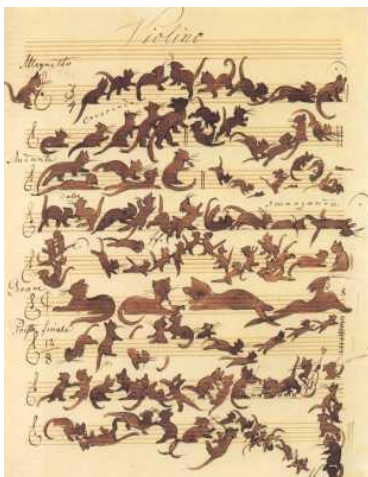 Violino
Allegretto
3
4
crescendo
Andante
Dolce
smorzando
Grave
Presto finale
12
8